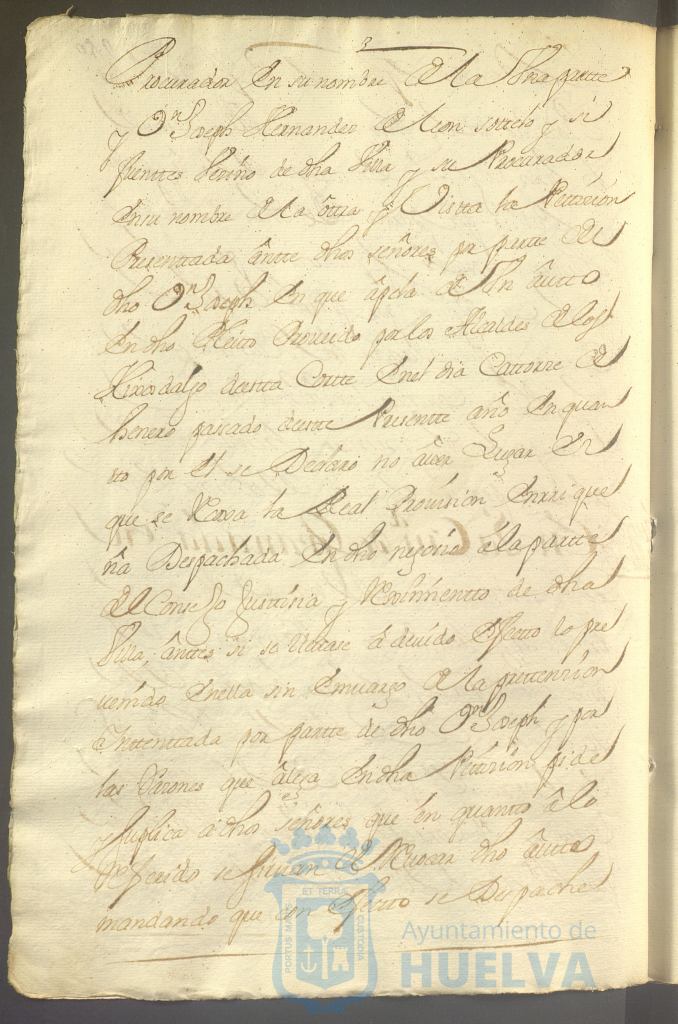 Procurador En su nombre de la Una partte
y Dn Joseph Hernandez de leon sotelo y si
fuenttes Vezino de dha Villa y su Procurador
En su nombre de la ôtra, y Vistta la Petizion
Presenttada ântte dhos señores por partte del
dho Dn Joseph En que âpela de Un âutto
En dho Pleito Proueido por los Alcaldes de los
Hixosdalgo destta Cortte En el dia Cattorze de
henero passado destte Presentte año En quan
tto por el se Declaro no âuer Lugar En
que se la Real Provision
ña Despachada En dho negozio â la partte
del Consejo Justtizia y Reximientto de dha
Villa, ânttes si se lleuase â deuido Efectto lo pre
uenido En ella sin Embargo de la prettenzion
Inttenttada por partte de dho Dn Joseph y por
las Razones que âlega En dha Petizion pide
y suplica â dhos señores que en quanto â lo
Referido se siruan de Reuocar dho âutto
mandando que con Efectto se Despache
PORTUS MARIS ET TERRAE CUSTODIA
Ayuntamiento de
HUELVA